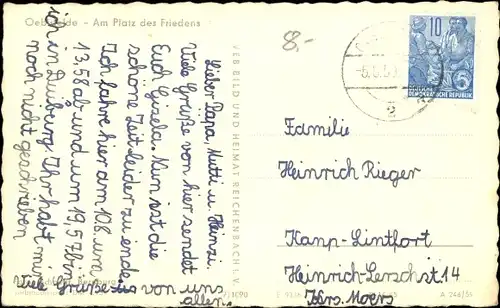 Oebisfelde - Am Platz des Friedens
8.-
Lieber Papa, Mutti u. Heinzi.
Viele Grüße von hier sendet
Euch Gisela. Nun ist die
schöne Zeit leider zu ende.
Ich fahre hier am 10.8. um
13,58 ab und um 19,57 bin
ich in Duisburg. Ihr habt mir
noch nicht geschrieben
Viele Grüße von uns
allen.
VEB BILD UND HEIMAT REICHENBACH I. V.
10
5
DEUTSCHE
DEMOKRATISCHE REPUBLIK
2
Familie
Heinrich Rieger
Kanp-Lintfort
Heinrich-Lerschst.14
Krs. Moers
A 246/56